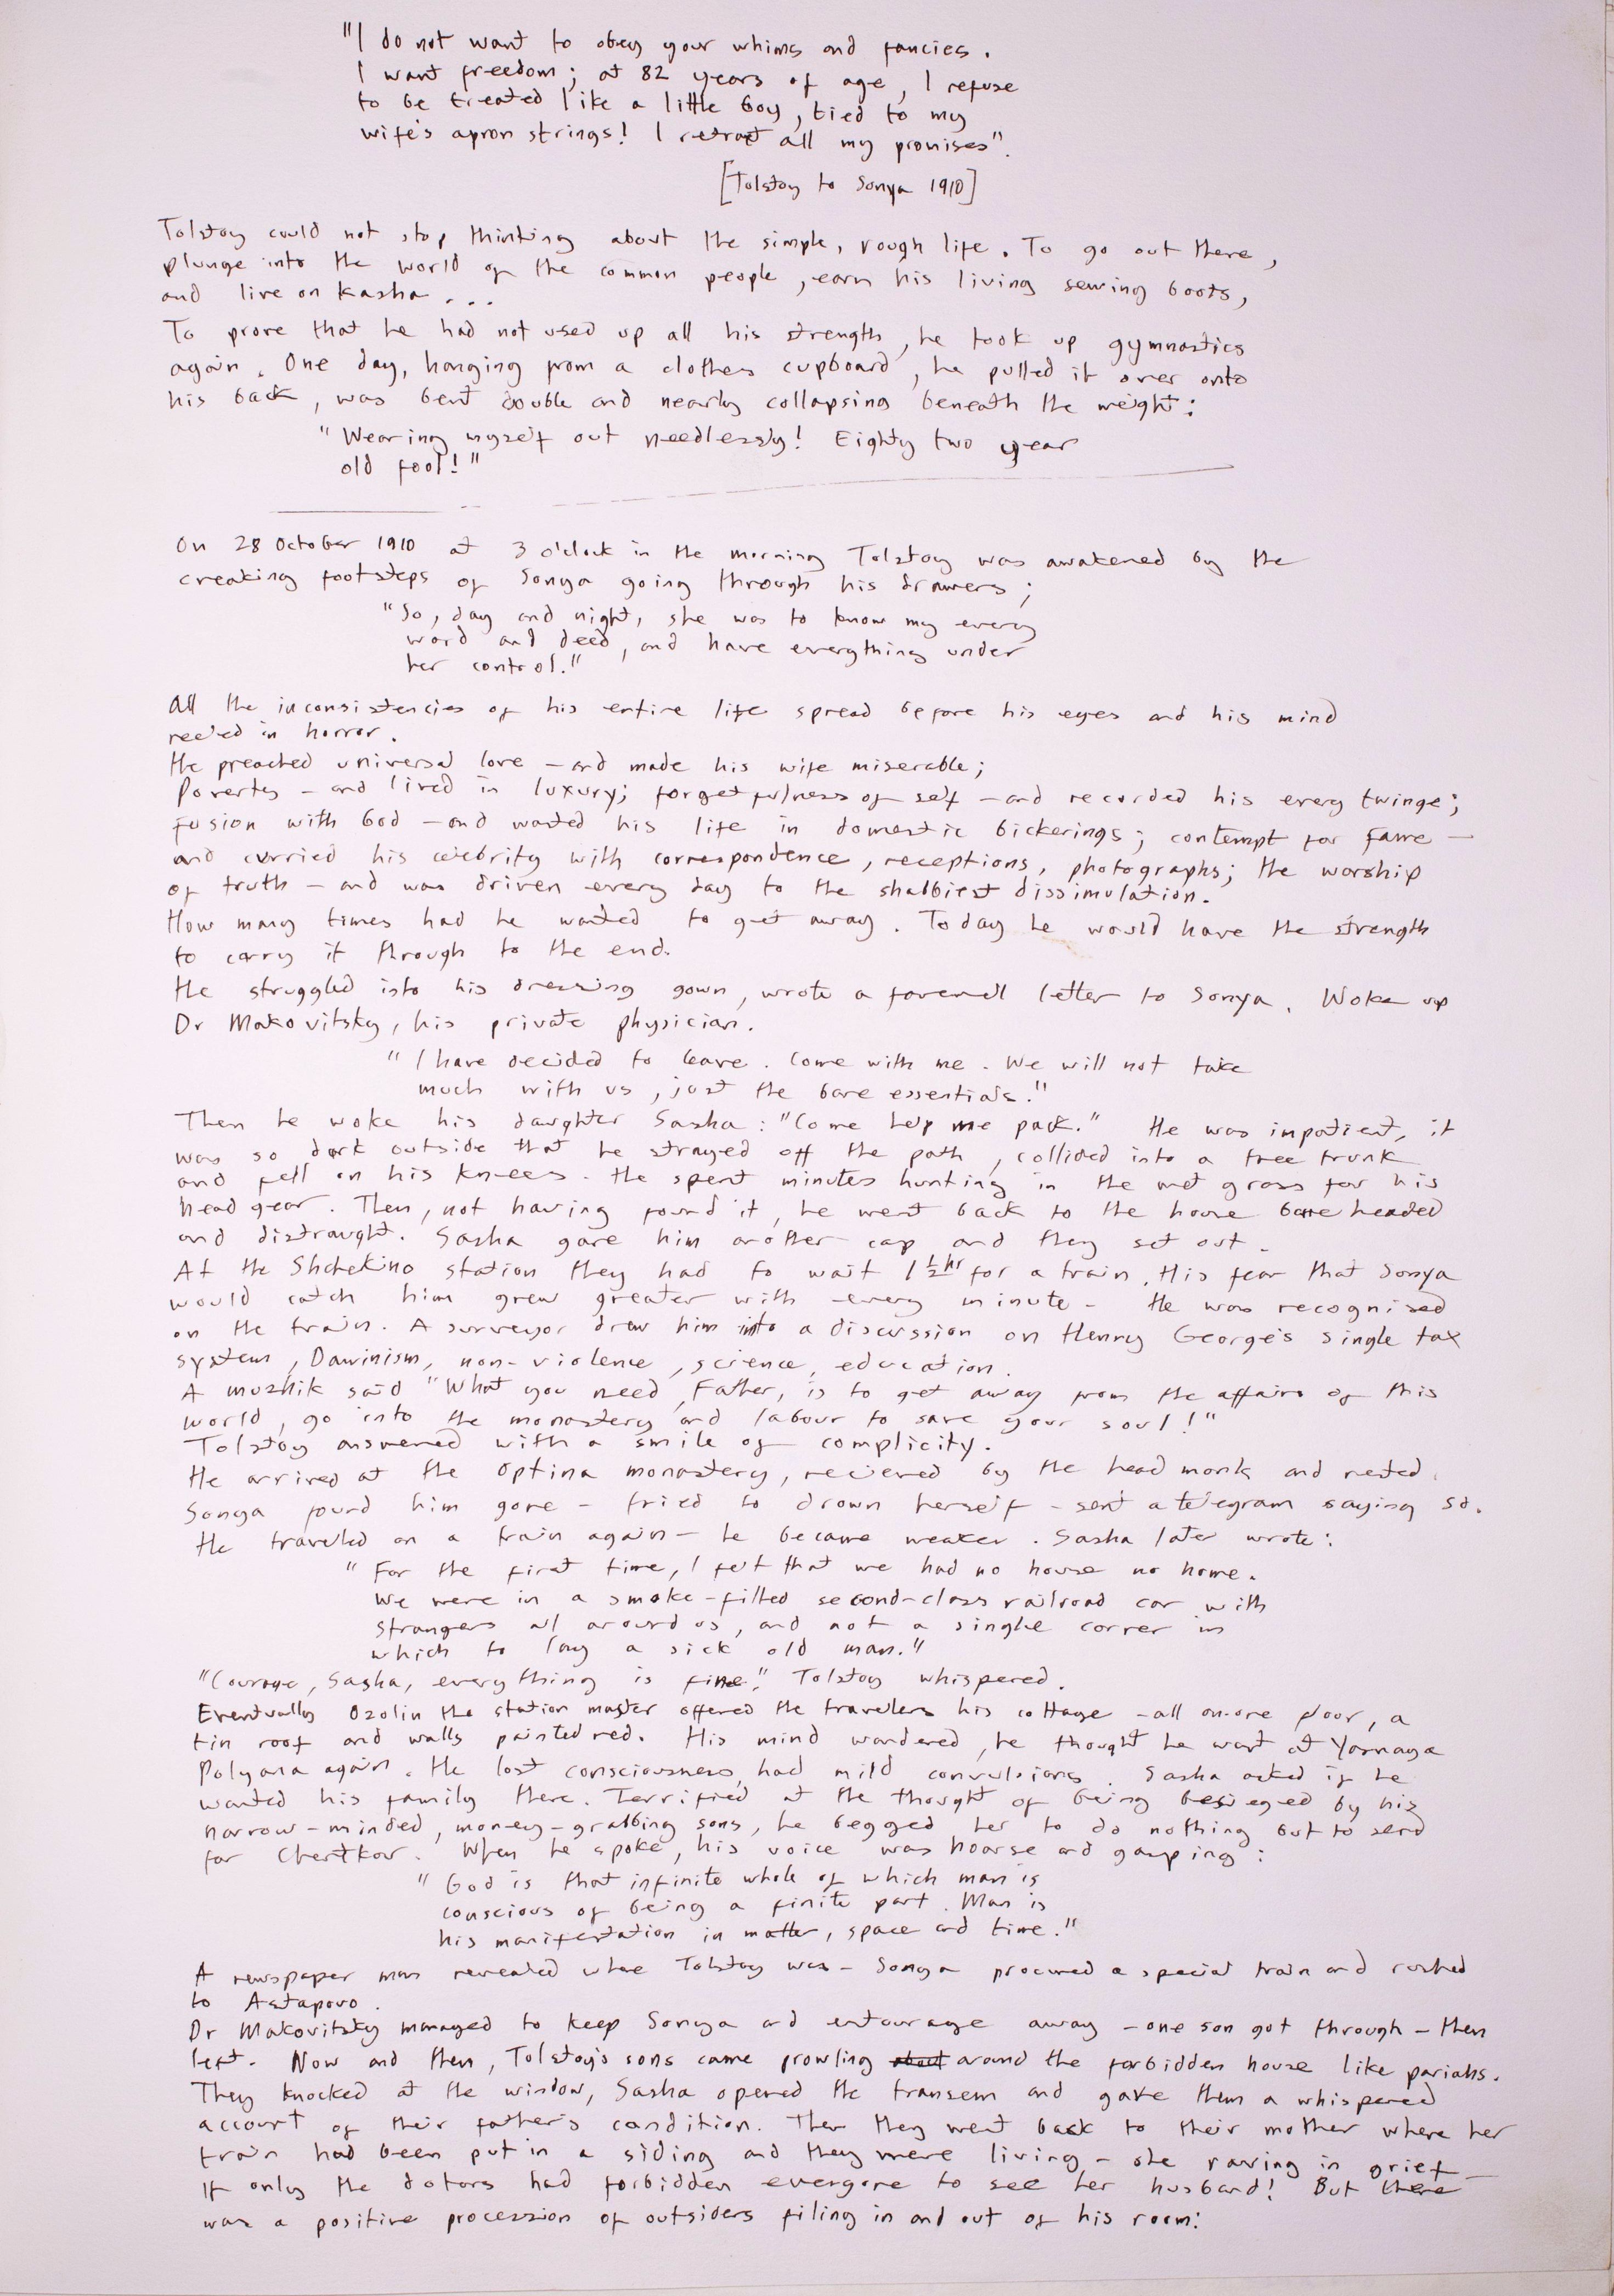 "I do not want to obey your whims and fancies.
I want freedom; at 82 years of age, I refuse
to be treated like a little boy, tied to my
wife's apron strings! I retract all my promises".
[Tolstoy to Sonya 1910]
Tolstoy could not stop thinking about the simple, rough life. To go out there,
plunge into the world of the common people, earn his living sewing boots,
and live on kasha...
To prove that he had not used up all his strength, he took up gymnastics
again. One day, hanging from a clothes cupboard, he pulled it over onto
his back, was bent double and nearly collapsing beneath the weight:
"Wearing myself out needlessly! Eighty two year
old fool!"
On 28 October 1910 at 3 o'clock in the morning Tolstoy was awakened by the
creaking footsteps of Sonya going through his drawers;
"So, day and night, she was to know my every
word and deed, and have everything under
her control."
All the inconsistencies of his entire life spread before his eyes and his mind
reeled in horror.
He preached universal love - and made his wife miserable;
Poverty - and lived in luxury; forgetfulness of self - and recorded his every twinge;
fusion with God - and wasted his life in domestic bickerings; contempt for fame -
and curried his celebrity with correspondence, receptions, photographs; the worship
of truth - and was driven every day to the shabbiest dissimulation.
How many times had he wanted to get away. Today he would have the strength
to carry it through to the end.
He struggled into his dressing gown, wrote a farewell letter to Sonya. Woke up
Dr Makovitsky, his private physician.
"I have decided to leave. Come with me. We will not take
much with us, just the bare essentials."
Then he woke his daughter Sasha: "Come help me pack." He was impatient, it
was so dark outside that he strayed off the path, collided into a tree trunk
and fell on his knees. He spent minutes hunting in the wet grass for his
head gear. Then, not having found it, he went back to the house bare headed
and distraught. Sasha gave him another cap and they set out.
At the Shchekino station they had to wait 1½ hr for a train. His fear that Sonya
would catch him grew greater with every minute - He was recognised
on the train. A surveyor drew him into a discussion on Henry George's single tax
system, Darwinism, non-violence, science, education.
A muzhik said "What you need, Father, is to get away from the affairs of this
world, go into the monastery and labour to save your soul!"
Tolstoy answered with a smile of complicity.
He arrived at the Optina monastery, recieved by the head monk and rested.
Sonya found him gone - tried to drown herself - sent a telegram saying so.
He traveled on a train again - he became weaker. Sasha later wrote:
"For the first time, I felt that we had no house no home.
We were in a smoke-filled second-class railroad car with
strangers all around us, and not a single corner in
which to lay a sick old man."
"Courage, Sasha, everything is fine." Tolstoy whispered.
Eventually Ozolin the station master offered the travelers his cottage - all on one floor, a
tin roof and walls painted red. His mind wandered, he thought he was at Yasnaya
Polyana again. He lost consciousness, had mild convulsions. Sasha asked if he
wanted his family there. Terrified at the thought of being besieged by his
narrow-minded, money-grabbing sons, he begged her to do nothing but to send
for Chertkov. When he spoke, his voice was hoarse and gasping:
"God is that infinite whole of which man is
conscious of being a finite part. Man is
his manifestation in matter, space and time."
A newspaper man revealed where Tolstoy was - Sonya procured a special train and rushed
to Astapovo.
Dr Makovitsky managed to keep Sonya and entourage away - one son got through - then
left. Now and then, Tolstoy's sons came prowling about around the forbidden house like pariahs.
They knocked at the window, Sasha opened the transem and gave them a whispered
account of their father's condition. Then they went back to their mother where her
train had been put in a siding and they were living - she raving in grief -
If only the dotors had forbidden everyone to see her husband! But there
was a positive procession of outsiders filing in and out of his room: